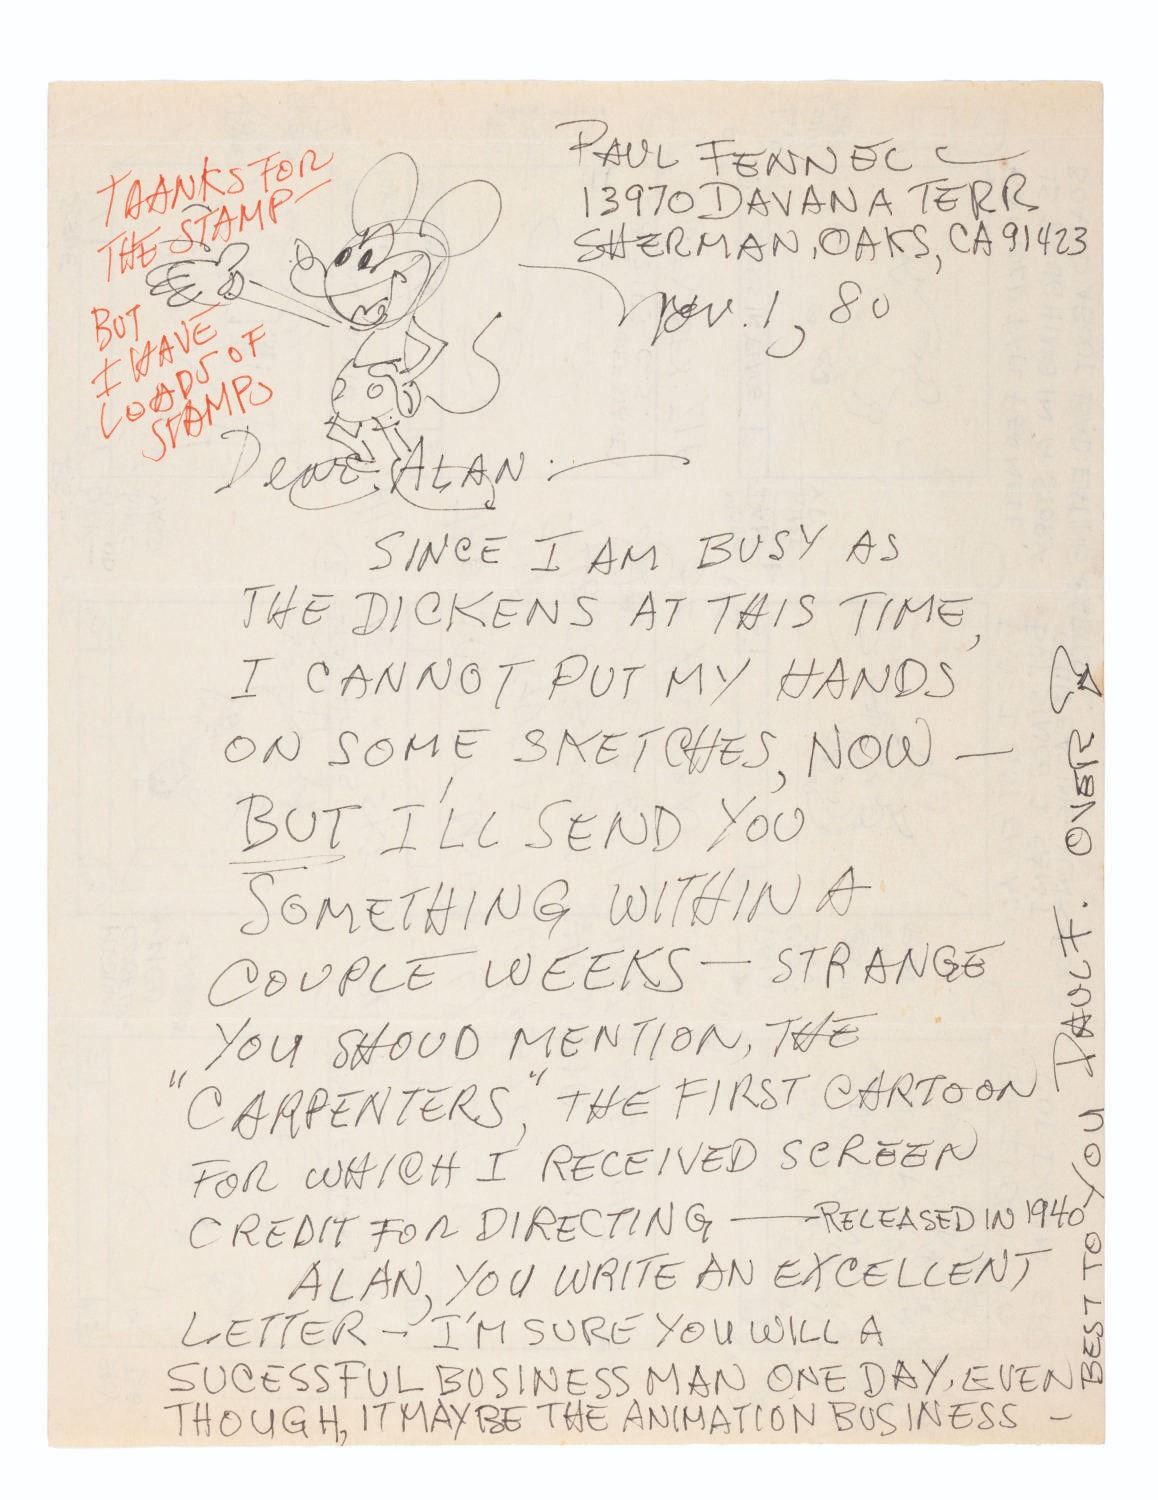 PAUL FENNELL
13970 DAVANA TERR
SHERMAN, OAKS, CA 91423
Nov. 1, 80
THANKS FOR
THE STAMP—
BUT
I HAVE
LOADS OF
STAMPS
Dear ALAN:—
SINCE I AM BUSY AS
THE DICKENS AT THIS TIME,
I CANNOT PUT MY HANDS
ON SOME SKETCHES, NOW—
BUT I'LL SEND YOU
SOMETHING WITHIN A
COUPLE WEEKS— STRANGE
YOU SHOUD MENTION, THE
"CARPENTERS," THE FIRST CARTOON
FOR WHICH I RECEIVED SCREEN
CREDIT FOR DIRECTING —RELEASED IN 1940
ALAN, YOU WRITE AN EXCELLENT
LETTER— I'M SURE YOU WILL A
SUCESSFUL BUSINESS MAN ONE DAY, EVEN
THOUGH, IT MAY BE THE ANIMATION BUSINESS—
BEST TO YOU PAUL F. OVER